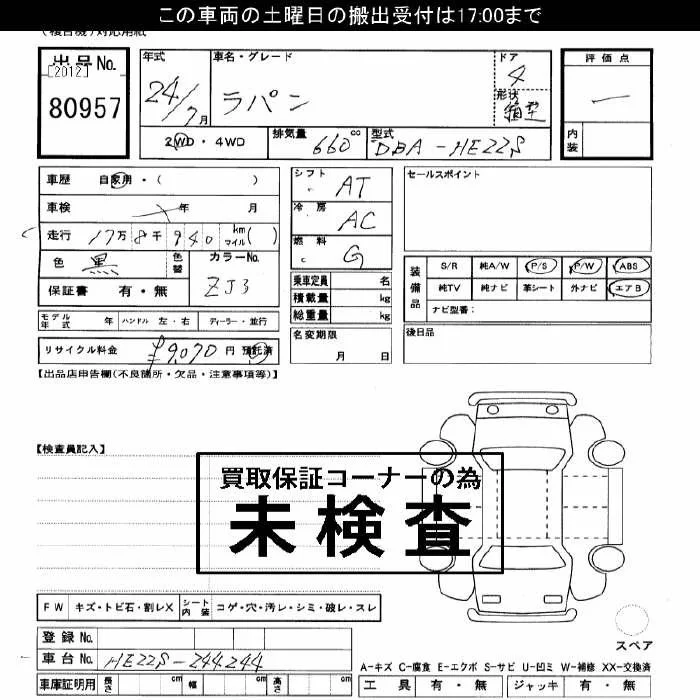 この車両の土曜日の搬出受付は17:00まで
(複合機)対応用紙
出品No.
[2012]
80957
年式 車名・グレード ドア
24/7月 ラパン 4
形状 箱型
2WD・4WD 排気量 660cc 型式 DBA-HE22S
評価点
—
内装
車歴 自家用・( )
車検 年 月
走行 17万8千940 kmマイル( )
色 黒 色替 カラーNo. ZJ3
保証書 有・無
モデル年式 年 ハンドル 左・右 ディーラー・並行
リサイクル料金 ¥9,070円 預託済
シフト AT
冷房 AC
燃料 G
乗車定員 名
積載量 kg
総重量 kg
名変期限
月 日
セールスポイント
装備品
S/R 純A/W P/S P/W ABS
純TV 純ナビ 革シート 外ナビ エアB
ナビ型番:
後日品
【出品店申告欄(不良箇所・欠品・注意事項等)】
【検査員記入】
買取保証コーナーの為
未検査
FW キズ・トビ石・割レX シート内装 コゲ・穴・汚レ・シミ・破レ・スレ
登録No.
車台No. HE22S-244244
車庫証明用 長さ cm 幅 cm 高さ cm
スペア
A-キズ C-腐食 E-エクボ S-サビ U-凹ミ W-補修 XX-交換済
工具 有・無 ジャッキ 有・無